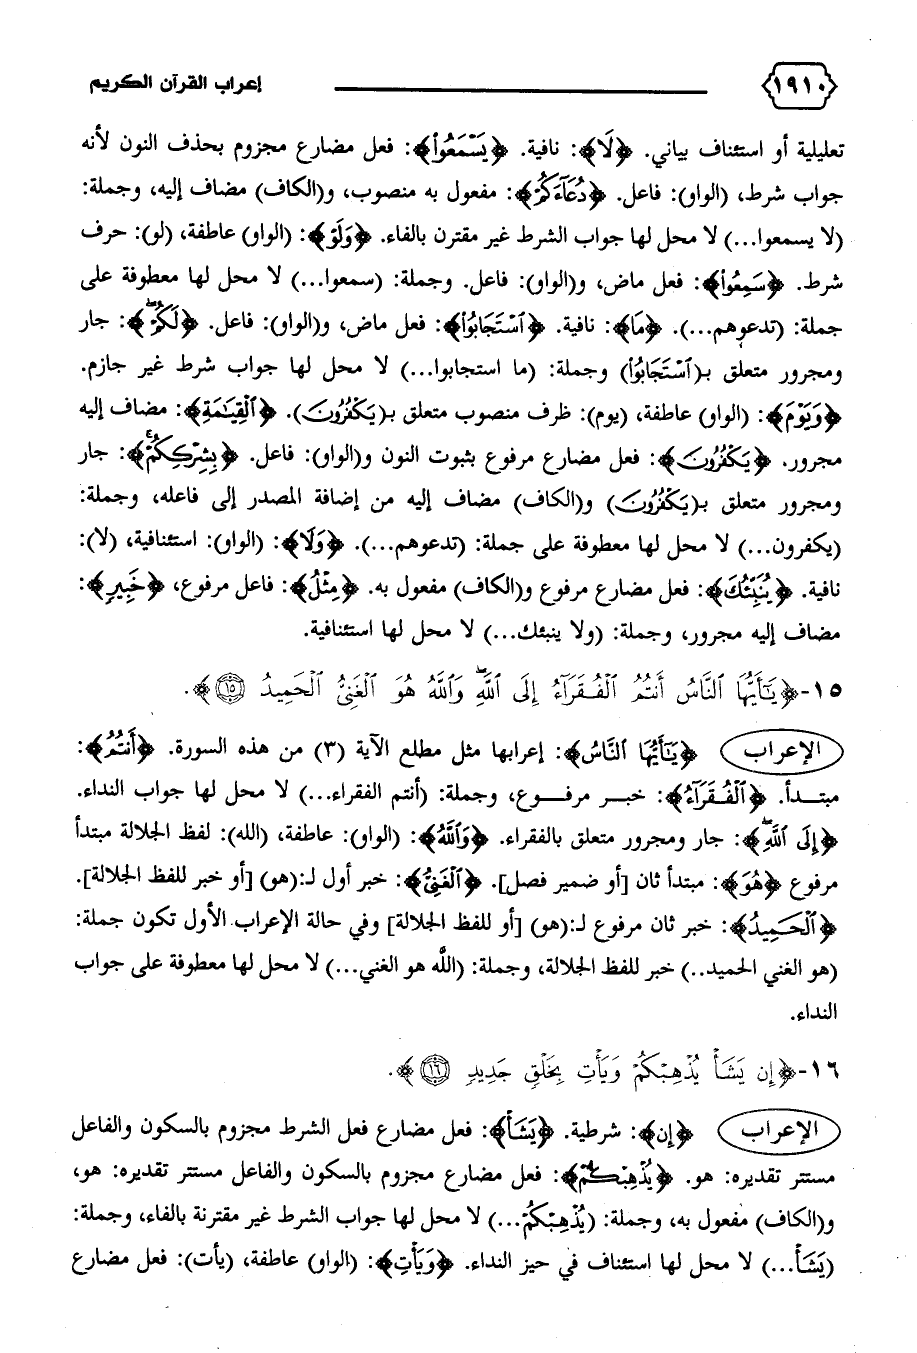 ١٩١٠ إعراب القرآن الكريم
تعليلية أو استئناف بياني. ﴿لَا﴾: نافية. ﴿يَسْمَعُوا﴾: فعل مضارع مجزوم بحذف النون لأنه
جواب شرط، (الواو): فاعل. ﴿دُعَاءَكُمْ﴾: مفعول به منصوب، و(الكاف) مضاف إليه، وجملة:
(لا يسمعوا...) لا محل لها جواب الشرط غير مقترن بالفاء. ﴿وَلَوْ﴾: (الواو) عاطفة، (لو): حرف
شرط. ﴿سَمِعُوا﴾: فعل ماض، و(الواو): فاعل. وجملة: (سمعوا...) لا محل لها معطوفة على
جملة: (تدعوهم...). ﴿مَا﴾: نافية. ﴿ٱسْتَجَابُوا﴾: فعل ماض، و(الواو): فاعل. ﴿لَكُمْ﴾: جار
ومجرور متعلق بـ(ٱسْتَجَابُوا) وجملة: (ما استجابوا...) لا محل لها جواب شرط غير جازم.
﴿وَيَوْمَ﴾: (الواو) عاطفة، (يوم): ظرف منصوب متعلق بـ(يَكْفُرُونَ). ﴿ٱلْقِيَٰمَةِ﴾: مضاف إليه
مجرور. ﴿يَكْفُرُونَ﴾: فعل مضارع مرفوع بثبوت النون و(الواو): فاعل. ﴿بِشِرْكِكُمْ﴾: جار
ومجرور متعلق بـ(يَكْفُرُونَ) و(الكاف) مضاف إليه من إضافة المصدر إلى فاعله، وجملة:
(يكفرون...) لا محل لها معطوفة على جملة: (تدعوهم...). ﴿وَلَا﴾: (الواو): استئنافية، (لا):
نافية. ﴿يُنَبِّئُكَ﴾: فعل مضارع مرفوع و(الكاف) مفعول به. ﴿مِثْلُ﴾: فاعل مرفوع، ﴿خَبِيرٍ﴾:
مضاف إليه مجرور، وجملة: (ولا ينبئك...) لا محل لها استئنافية.
١٥-﴿يَٰٓأَيُّهَا ٱلنَّاسُ أَنتُمُ ٱلْفُقَرَآءُ إِلَى ٱللَّهِۖ وَٱللَّهُ هُوَ ٱلْغَنِيُّ ٱلْحَمِيدُ ١٥﴾.
الإعراب ﴿يَٰٓأَيُّهَا ٱلنَّاسُ﴾: إعرابها مثل مطلع الآية (٣) من هذه السورة. ﴿أَنتُمُ﴾:
مبتدأ. ﴿ٱلْفُقَرَآءُ﴾: خبر مرفوع، وجملة: (أنتم الفقراء...) لا محل لها جواب النداء.
﴿إِلَى ٱللَّهِۖ﴾: جار ومجرور متعلق بالفقراء. ﴿وَٱللَّهُ﴾: (الواو): عاطفة، (الله): لفظ الجلالة مبتدأ
مرفوع ﴿هُوَ﴾: مبتدأ ثان [أو ضمير فصل]. ﴿ٱلْغَنِيُّ﴾: خبر أول لـ:(هو) [أو خبر للفظ الجلالة].
﴿ٱلْحَمِيدُ﴾: خبر ثان مرفوع لـ:(هو) [أو للفظ الجلالة] وفي حالة الإعراب الأول تكون جملة:
(هو الغني الحميد..) خبر للفظ الجلالة، وجملة: (اللَّه هو الغني...) لا محل لها معطوفة على جواب
النداء.
١٦-﴿إِن يَشَأْ يُذْهِبْكُمْ وَيَأْتِ بِخَلْقٍ جَدِيدٍ ١٦﴾.
الإعراب ﴿إِن﴾: شرطية. ﴿يَشَأْ﴾: فعل مضارع فعل الشرط مجزوم بالسكون والفاعل
مستتر تقديره: هو. ﴿يُذْهِبْكُمْ﴾: فعل مضارع مجزوم بالسكون والفاعل مستتر تقديره: هو،
و(الكاف) مفعول به، وجملة: (يُذْهِبْكُمْ...) لا محل لها جواب الشرط غير مقترنة بالفاء، وجملة:
(يَشَأْ...) لا محل لها استئناف في حيز النداء. ﴿وَيَأْتِ﴾: (الواو) عاطفة، (يأت): فعل مضارع